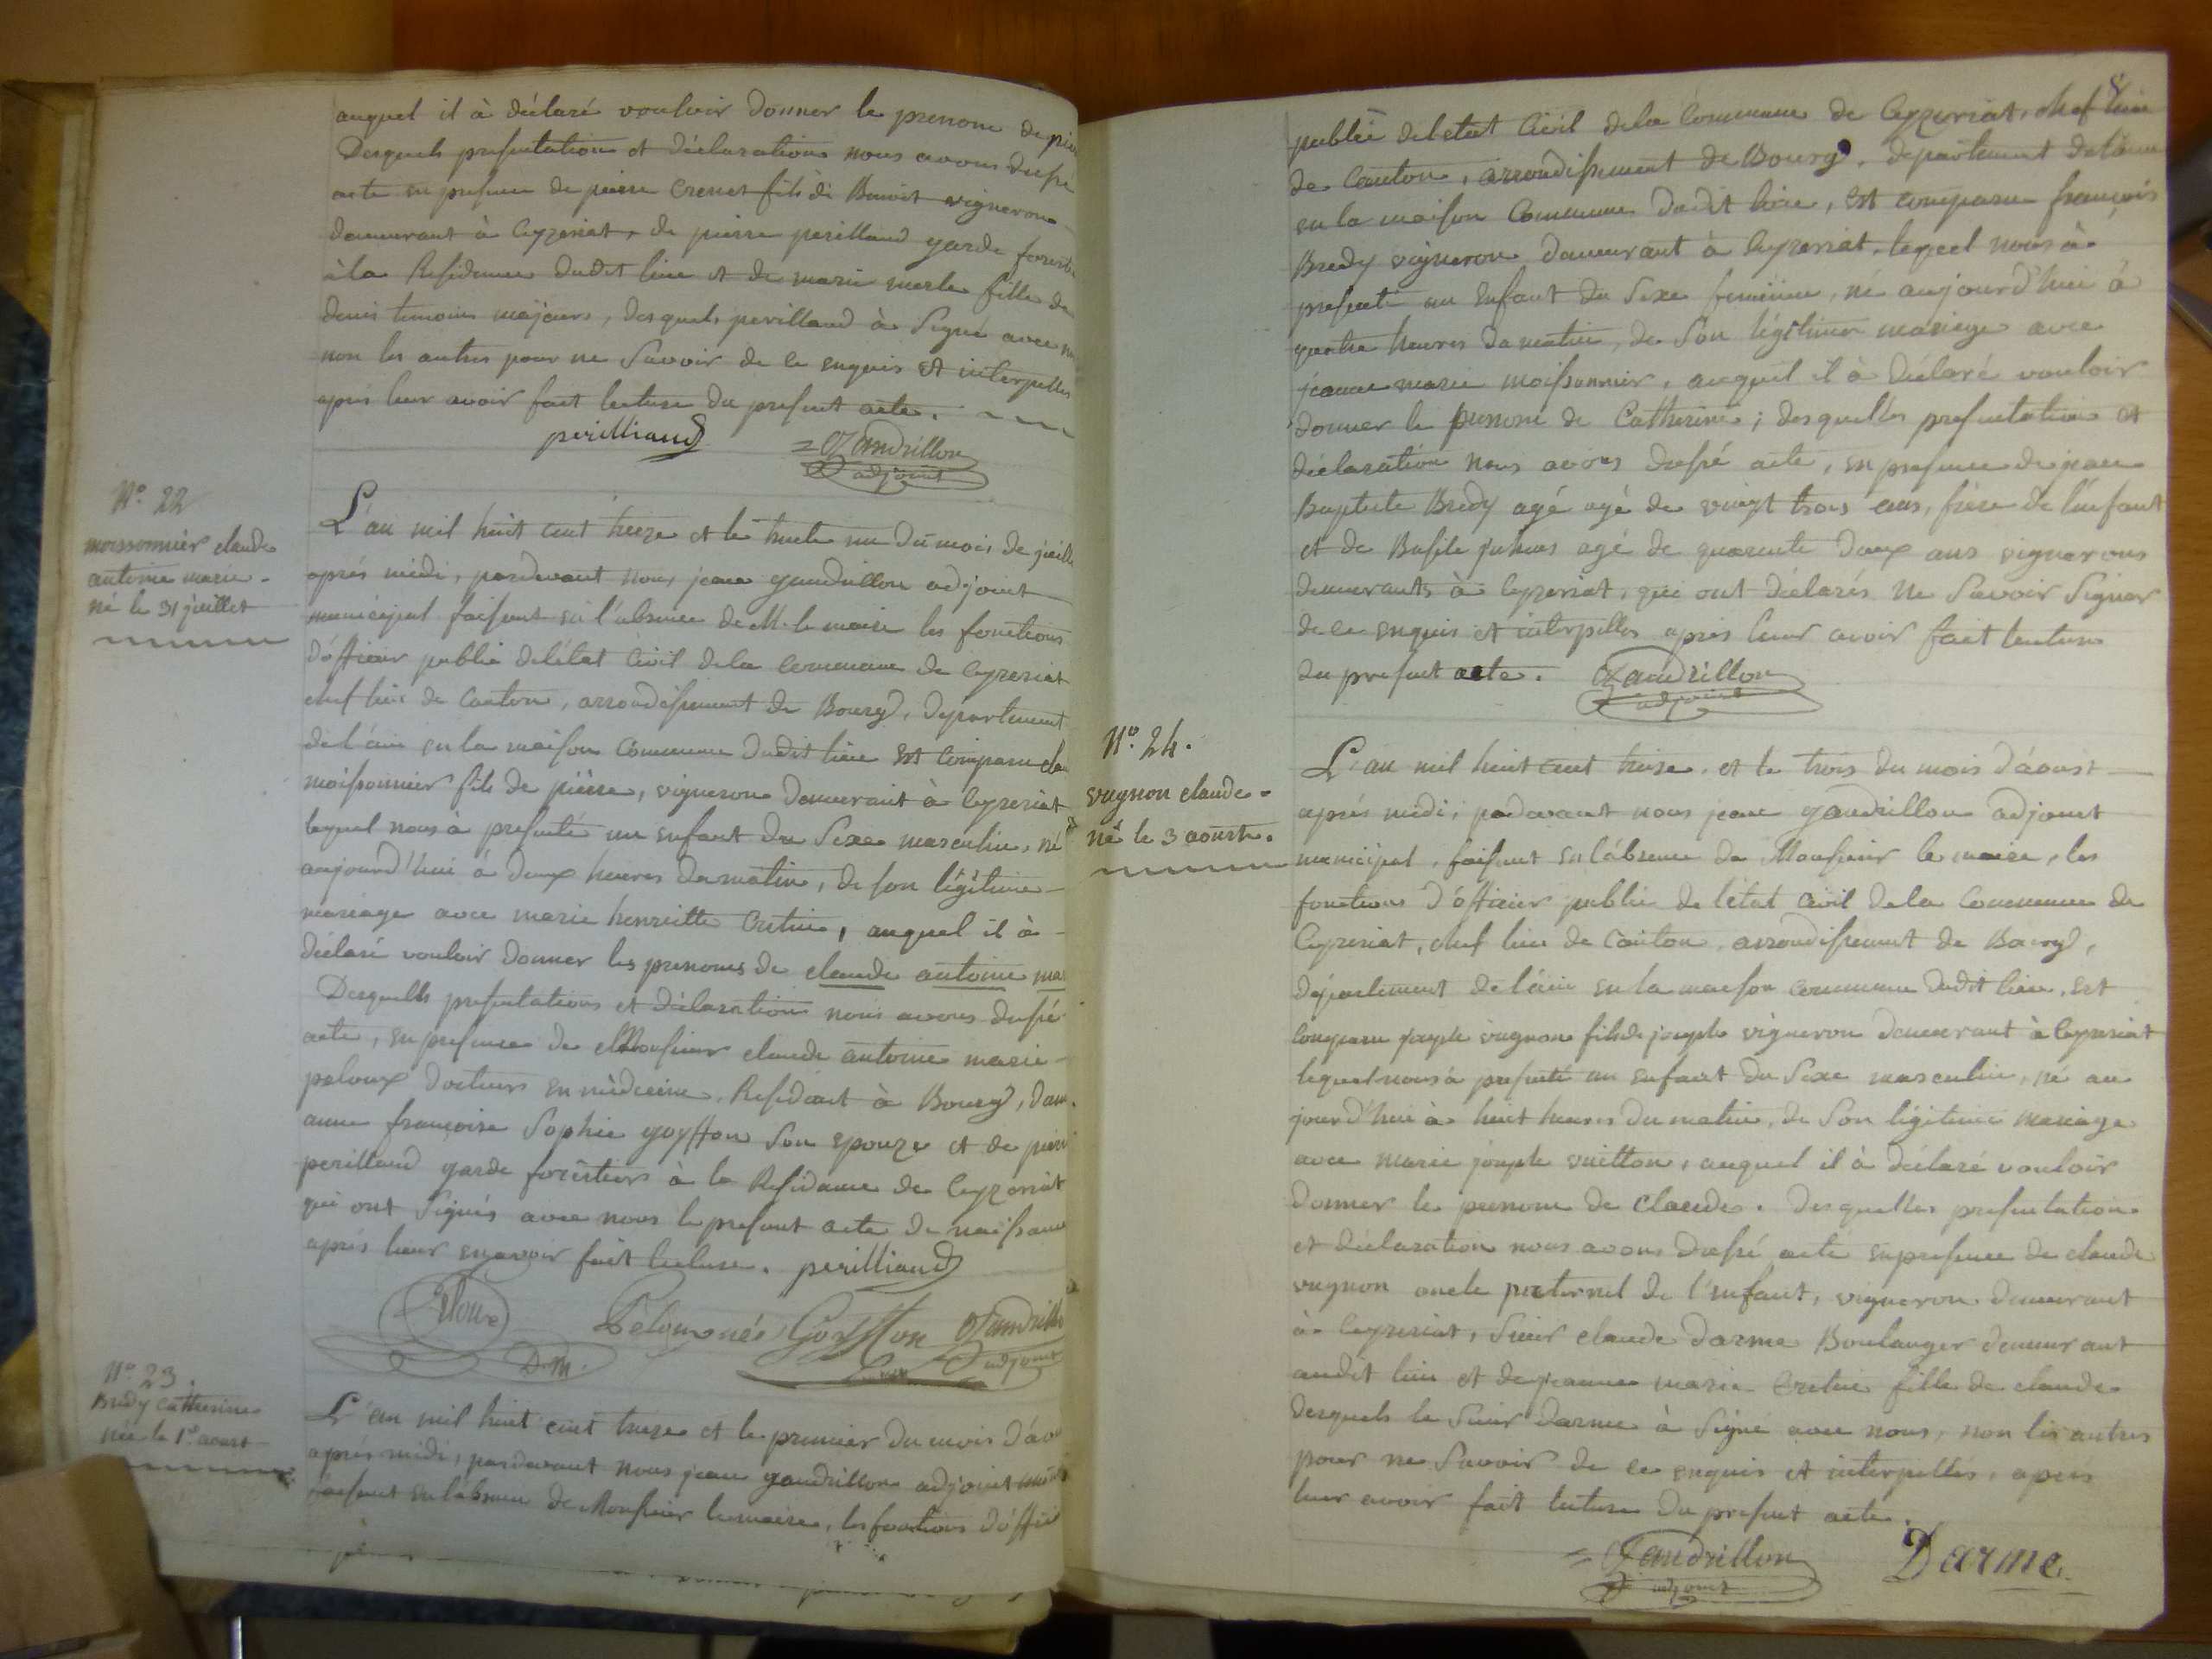 auquel il à déclaré vouloir donner le prenom de
Desquels presentation et déclaration nous avons dressé
acte en presence de pierre Crenet fils de Benoit vigneron
demeurant à Ceyzeriat, de pierre perilland garde
à la Residence dudit lieu et de marie merle fille de
denis temoins majeurs, desquels perilland à Signé avec
non les autres pour ne Savoir de ce enquis et interpellés
aprés leur avoir fait lecture du present acte.
perilliand Gandrillon
adjoint
N.° 22
moissonnier claude
antoine marie
né le 31 juillet
L'an mil huit cent treize et le trente un du mois de
aprés midi, pardevant nous jean gandrillon adjoint
municipal faisant en l'absence de M. le maire les fonctions
d'officier public de l'état Civil de la Commune de Ceyzeriat
chef lieu de Canton, arrondissement de Bourg, departement
de l'ain en la maison Commune dudit lieu Est Comparu
moissonnier fils de pierre, vigneron demeurant à Ceyzeriat
lequel nous à presenté un enfant du Sexe masculin, né
aujourd'hui à deux heures du matin, de son légitime
mariage avec marie henriette Cretin, auquel il à
déclaré vouloir donner les prenoms de claude antoine
Desquelles presentations et déclaration nous avons dressé
acte, en presence de Monsieur claude antoine marie
peloux docteur en médecine, Residant à Bourg,
anne françoise Sophie goyffon Son epouze et de
perilland garde forestier à la Residance de Ceyzeriat
qui ont Signés avec nous le present acte de naissance
aprés leur en avoir fait lecture. perilliand
Peloux Peloux née Goyffon Gandrillon
D.M. adjoint
N.° 23.
Bredy Catherine
née le 1.er aoust
L'an mil huit cent treize et le premier du mois
aprés midi, pardevant nous jean gandrillon adjoint
faisant en labsence de Monsieur le maire, les fonctions
8
public de l'etat Civil de la Commune de Ceyzeriat, chef lieu
de Canton, arrondissement de Bourg, departement de
en la maison Commune dudit lieu, est comparu françois
Bredy vigneron demeurant à Ceyzeriat, lequel nous à
presenté un Enfant du Sexe feminine, né aujourd'hui à
quatre heures du matin, de Son légitime mariage avec
jeanne marie moissonnier, auquel il à déclaré vouloir
donner le prenom de Catherine; desquelles presentation et
déclaration nous avons dressé acte, en presence de jean
Baptiste Bredy agé agé de vingt trois ans, frère de l'enfant
et de Basile agé de quarente deux ans vignerons
demeurants à Ceyzeriat, qui ont déclarés ne Savoir Signer
de ce enquis et interpellés aprés leur avoir fait lecture
du present acte. Gandrillon
adjoint
N.° 24.
vugnon claude
né le 3 aoust.
L'an mil huit cent treize, et le trois du mois d'aoust
aprés midi, pardevant nous jean gandrillon adjoint
municipal, faisant en l'absence de Monsieur le maire, les
fonctions d'officier public de l'état Civil de la Commune de
Ceyzeriat, chef lieu de Canton, arrondissement de Bourg,
département de l'ain en la maison commune dudit lieu, est
comparu joseph vugnon fils de joseph vigneron demeurant à Ceyzeriat
lequel nous à presenté un enfant du Sexe masculin, né au
jourd'hui à huit heures du matin, de Son légitime mariage
avec marie josephe vuitton, auquel il à déclaré vouloir
donner le prenom de Claude. desquelles presentation
et déclaration nous avons dressé acte en presence de claude
vugnon oncle paternel de l'enfant, vigneron demeurant
à Ceyzeriat, Sieur claude darme Boulanger demeurant
audit lieu et de jeanne marie Cretin fille de claude
desquels le Sieur darme à Signé avec nous, non les autres
pour ne Savoir de ce enquis et interpellés, aprés
leur avoir fait lecture du present acte.
Gandrillon Darme
adjoint